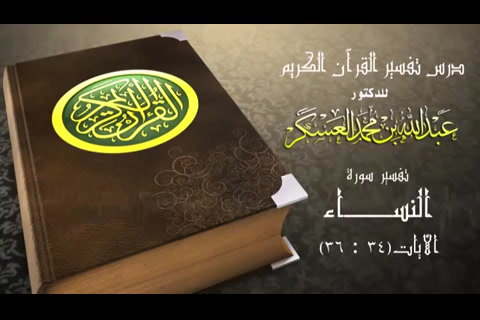 درس تفسير القرآن الكريم
للدكتور
عبدالله بن محمد العسكر
تفسير سورة
النساء
الآيات (٣٤ : ٣٦)
القرآن الكريم